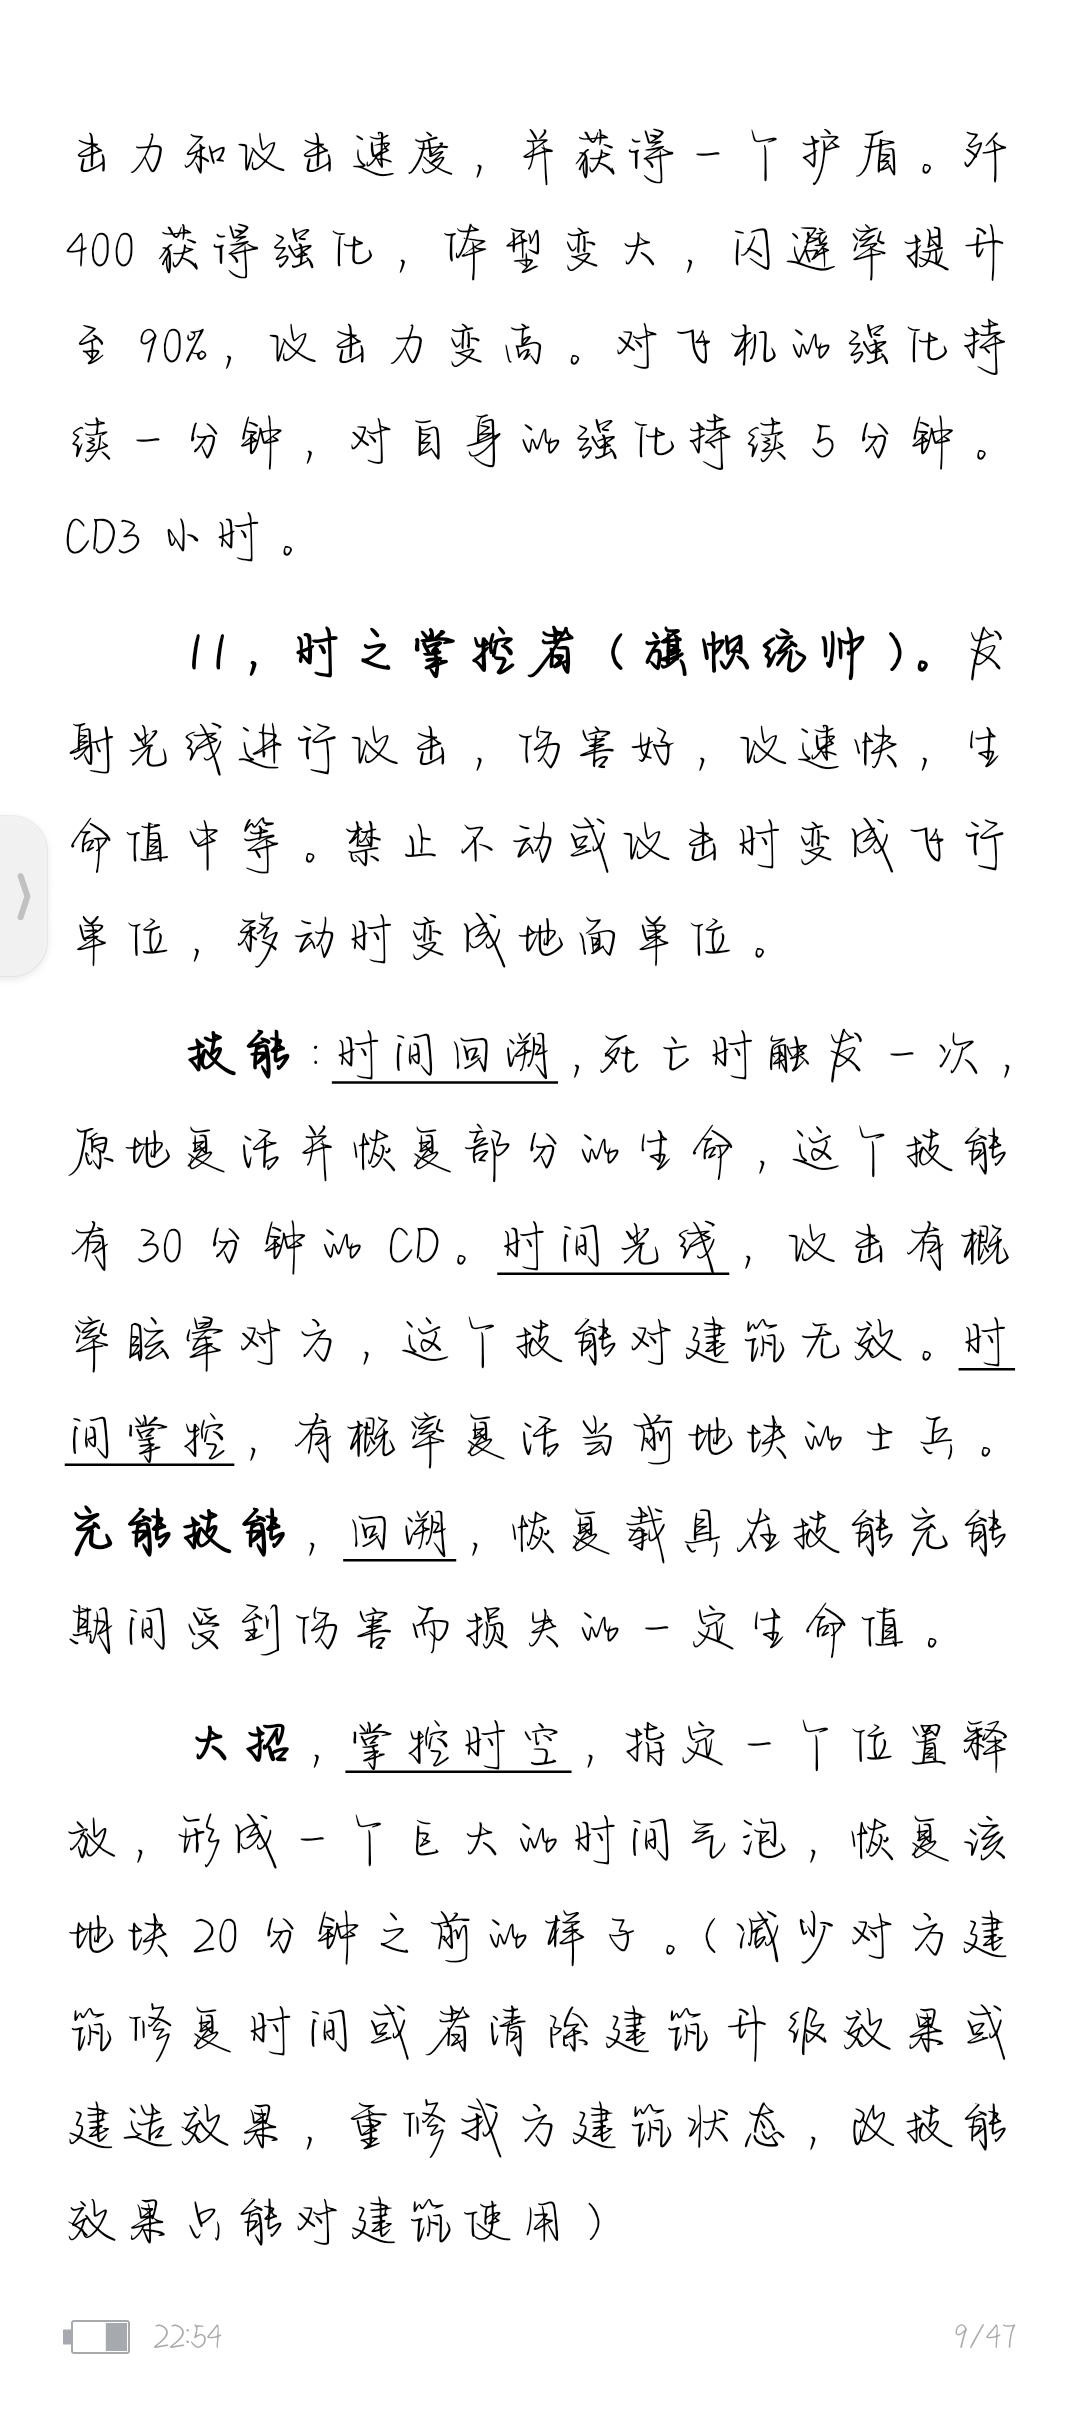 击力和攻击速度，并获得一个护盾。歼
400 获得强化，体型变大，闪避率提升
至 90%，攻击力变高。对飞机的强化持
续一分钟，对自身的强化持续 5 分钟。
CD3 小时。
11，时之掌控者（旗帜统帅）。发
射光线进行攻击，伤害好，攻速快，生
命值中等。禁止不动或攻击时变成飞行
单位，移动时变成地面单位。
技能：时间回溯，死亡时触发一次，
原地复活并恢复部分的生命，这个技能
有 30 分钟的 CD。时间光线，攻击有概
率眩晕对方，这个技能对建筑无效。时
间掌控，有概率复活当前地块的士兵。
充能技能，回溯，恢复载具在技能充能
期间受到伤害而损失的一定生命值。
大招，掌控时空，指定一个位置释
放，形成一个巨大的时间气泡，恢复该
地块 20 分钟之前的样子。（减少对方建
筑修复时间或者清除建筑升级效果或
建造效果，重修我方建筑状态，改技能
效果只能对建筑使用）
22:54
9/47